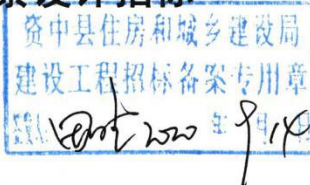 案设计招标
资中县住房和城乡建设局
建设工程招标备案专用章
2020 年 9 月 14